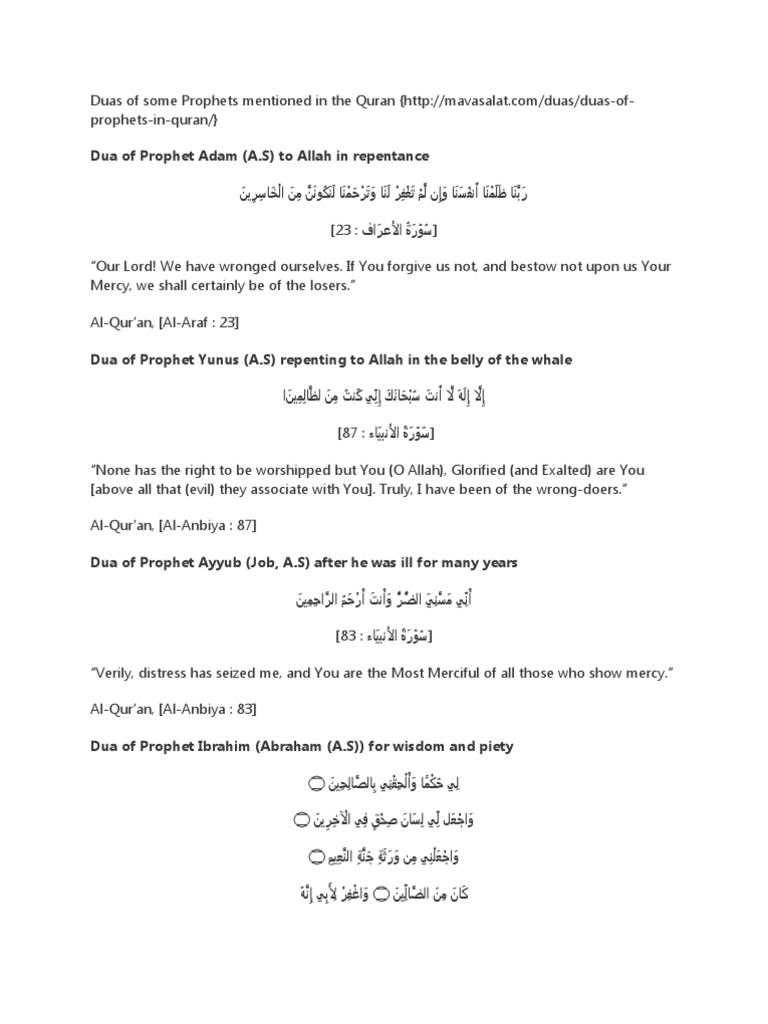 Duas of some Prophets mentioned in the Quran {http://mavasalat.com/duas/duas-of-
prophets-in-quran/}
Dua of Prophet Adam (A.S) to Allah in repentance
رَبَّنَا ظَلَمْنَا أَنفُسَنَا وَإِن لَّمْ تَغْفِرْ لَنَا وَتَرْحَمْنَا لَنَكُونَنَّ مِنَ الْخَاسِرِينَ
[سُوۡرَةُ الأعرَاف : 23]
“Our Lord! We have wronged ourselves. If You forgive us not, and bestow not upon us Your
Mercy, we shall certainly be of the losers.”
Al-Qur’an, [Al-Araf : 23]
Dua of Prophet Yunus (A.S) repenting to Allah in the belly of the whale
إِلَّا إِلَهَ لَّا أَنتَ سُبْحَانَكَ إِنِّي كُنتُ مِنَ لظَّالِمِينَا
[سُوۡرَةُ الأنبیَاء : 87]
“None has the right to be worshipped but You (O Allah), Glorified (and Exalted) are You
[above all that (evil) they associate with You]. Truly, I have been of the wrong-doers.”
Al-Qur’an, [Al-Anbiya : 87]
Dua of Prophet Ayyub (Job, A.S) after he was ill for many years
أَنِّي مَسَّنِيَ الضُّرُّ وَأَنتَ أَرْحَمُ الرَّاحِمِينَ
[سُوۡرَةُ الأنبیَاء : 83]
“Verily, distress has seized me, and You are the Most Merciful of all those who show mercy.”
Al-Qur’an, [Al-Anbiya : 83]
Dua of Prophet Ibrahim (Abraham (A.S)) for wisdom and piety
لِي حُكْمًا وَأَلْحِقْنِي بِالصَّالِحِينَ ۝
وَاجْعَل لِّي لِسَانَ صِدْقٍ فِي الْآخِرِينَ ۝
وَاجْعَلْنِي مِن وَرَثَةِ جَنَّةِ النَّعِيمِ ۝
كَانَ مِنَ الضَّالِّينَ ۝ وَاغْفِرْ لِأَبِي إِنَّهُ